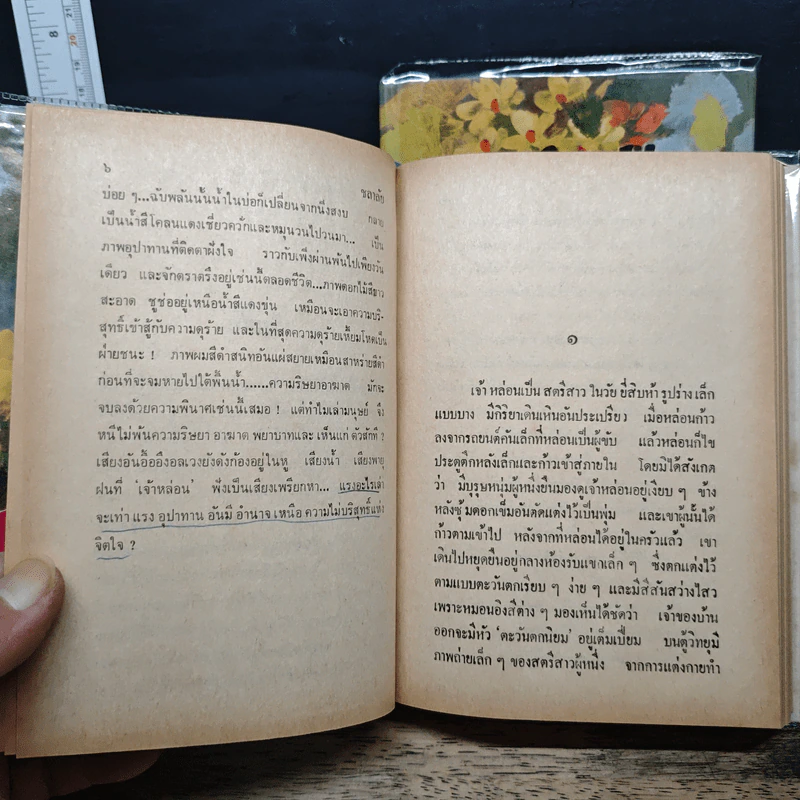 8
21
20
๖
ชลาลัย
บ่อย ๆ...ฉับพลันนั้นน้ำในบ่อก็เปลี่ยนจากนิ่งสงบ กลาย
เป็นน้ำสีโคลนแดงเชี่ยวควักและหมุนวนไปวนมา... เป็น
ภาพอุปาทานที่ติดตาฝังใจ ราวกับเพิ่งผ่านพ้นไปเพียงวัน
เดียว และจักตราตรึงอยู่เช่นนี้ตลอดชีวิต...ภาพดอกไม้สีขาว
สะอาด ชูช่ออยู่เหนือน้ำสีแดงขุ่น เหมือนจะเอาความบริ-
สุทธิ์เข้าสู้กับความดุร้าย และในที่สุดความดุร้ายเหี้ยมโหดเป็น
ฝ่ายชนะ ! ภาพผมสีดำสนิทอันแผ่สยายเหมือนสาหร่ายสีดำ
ก่อนที่จะจมหายไปใต้พื้นน้ำ......ความริษยาอาฆาต มักจะ
จบลงด้วยความพินาศเช่นนี้เสมอ ! แต่ทำไมเล่ามนุษย์ จึง
หนีไม่พ้นความริษยา อาฆาต พยาบาทและ เห็นแก่ ตัวสักที ?
เสียงอันอื้ออึงอลเวงยังดังก้องอยู่ในหู เสียงน้ำ เสียงพายุ
ฝนที่ 'เจ้าหล่อน' ฟังเป็นเสียงเพรียกหา... แรงอะไรเล่า
จะเท่า แรง อุปาทาน อันมี อำนาจ เหนือ ความไม่บริสุทธิ์แห่ง
จิตใจ ?
๑
เจ้า หล่อนเป็น สตรีสาว ในวัย ยี่สิบห้า รูปร่าง เล็ก
แบบบาง มีกิริยาเดินเหินอันประเปรียว เมื่อหล่อนก้าว
ลงจากรถยนต์คันเล็กที่หล่อนเป็นผู้ขับ แล้วหล่อนก็ไข
ประตูตึกหลังเล็กและก้าวเข้าสู่ภายใน โดยมิได้สังเกต
ว่า มีบุรุษหนุ่มผู้หนึ่งยืนมองดูเจ้าหล่อนอยู่เงียบ ๆ ข้าง
หลังซุ้มดอกเข็มอันตัดแต่งไว้เป็นพุ่ม และเขาผู้นั้นได้
ก้าวตามเข้าไป หลังจากที่หล่อนได้อยู่ในครัวแล้ว เขา
เดินไปหยุดยืนอยู่กลางห้องรับแขกเล็ก ๆ ซึ่งตกแต่งไว้
ตามแบบตะวันตกเรียบ ๆ ง่าย ๆ และมีสีสันสว่างไสว
เพราะหมอนอิงสีต่าง ๆ มองเห็นได้ชัดว่า เจ้าของบ้าน
ออกจะมีหัว 'ตะวันตกนิยม' อยู่เต็มเปี่ยม บนตู้วิทยุมี
ภาพถ่ายเล็ก ๆ ของสตรีสาวผู้หนึ่ง จากการแต่งกายทำ